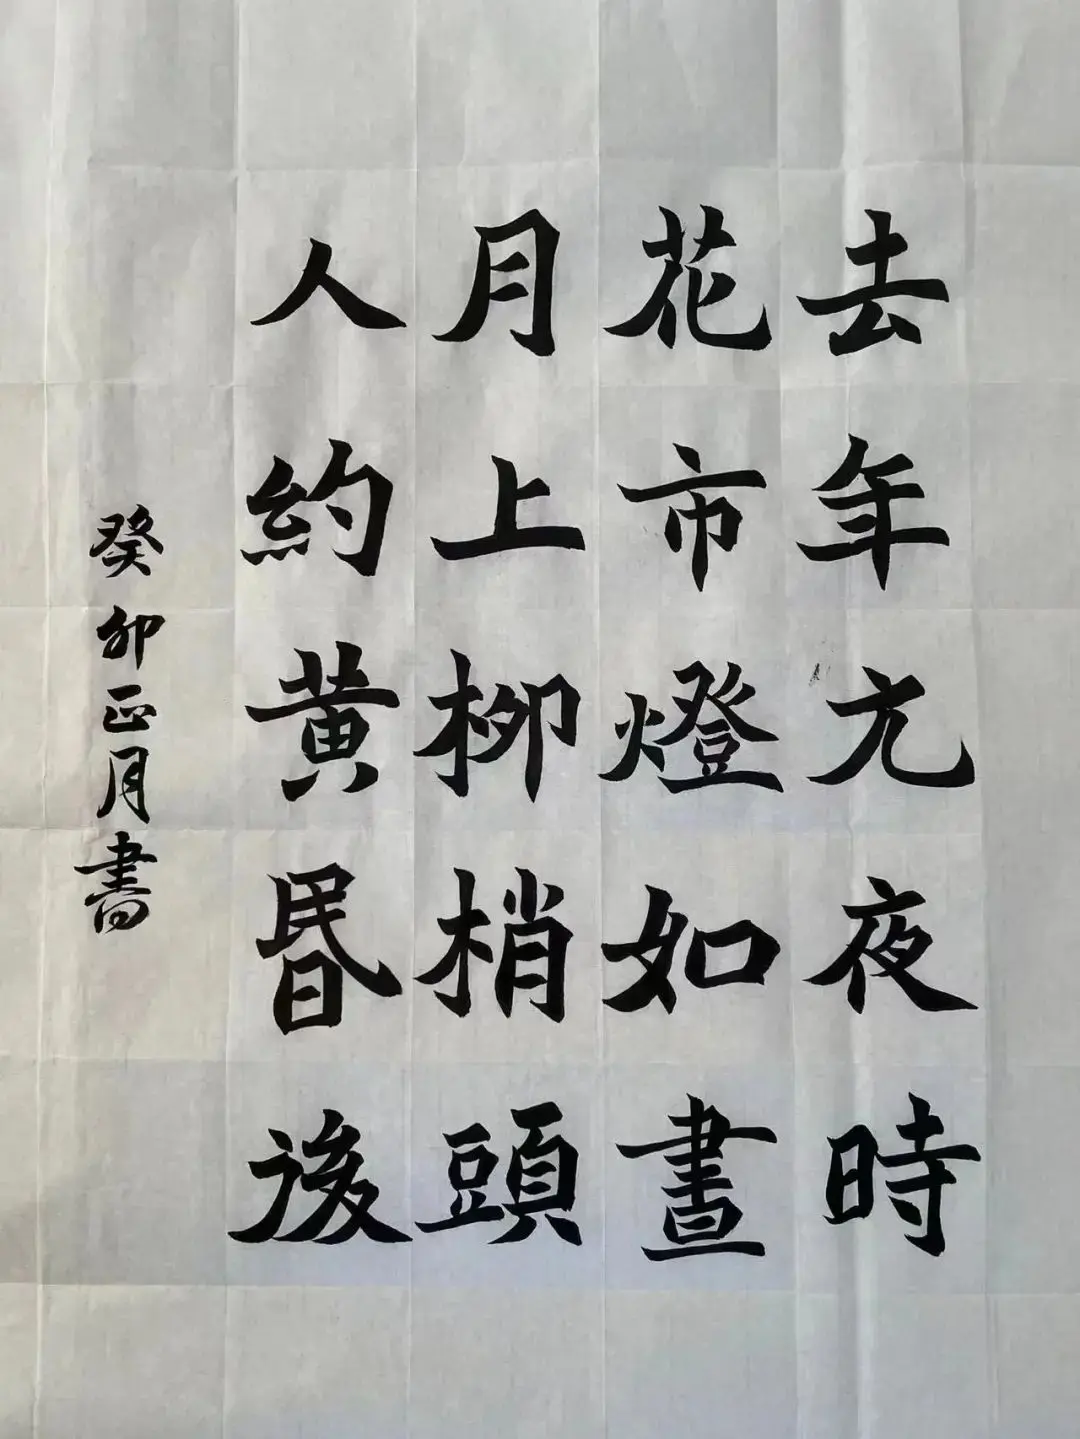 去年元夜時
花市燈如晝
月上柳梢頭
人約黃昬後
癸卯正月書